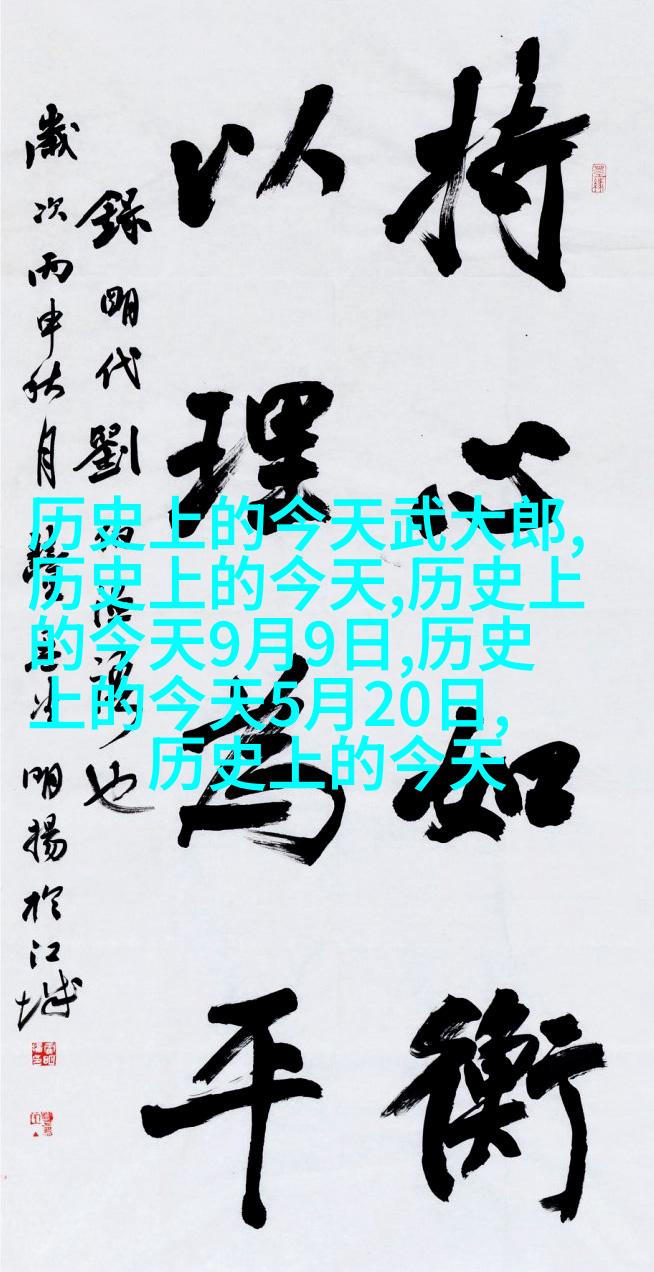 持心如衡
以理為平
錄明代劉也
歲次丙申秋月明揚於江城
历史上的今天武大郎,
历史上的今天,历史上
的今天9月9日,历史
上的今天5月20日,
历史上的今天